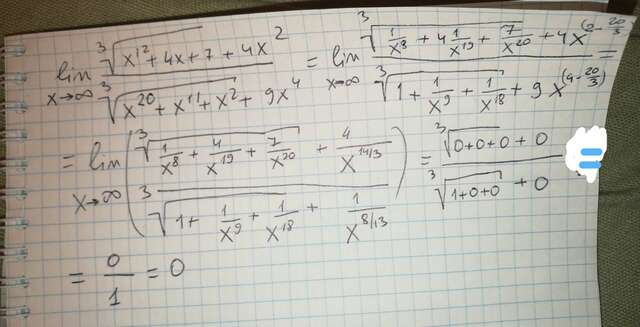 lim x→∞ (∛(x¹² + 4x + 7) + 4x²) / (∛(x²⁰ + x¹¹ + x²) + 9x⁴) = lim x→∞ (∛(1/x⁸ + 4 1/x¹⁹ + 7/x²⁰) + 4x^(2 - 20/3)) / (∛(1 + 1/x⁹ + 1/x¹⁸) + 9x^(4 - 20/3)) =
= lim x→∞ ((∛(1/x⁸ + 4/x¹⁹ + 7/x²⁰) + 4/x^(14/3)) / (∛(1 + 1/x⁹ + 1/x¹⁸) + 1/x^(8/13))) = (∛(0+0+0) + 0) / (∛(1+0+0) + 0) =
= 0/1 = 0